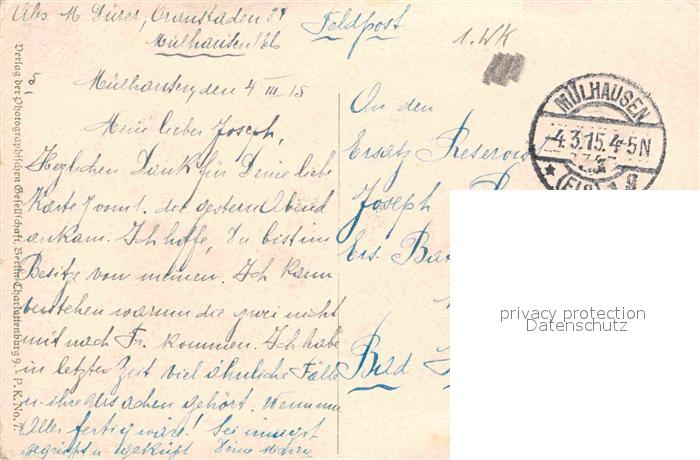 Abs. M Dürer,
Mülhausen Els
Feldpost
1. WK
Mülhausen, den 4 III 15
Mein lieber Joseph,
Herzlichen Dank für Deine liebe
Karte vom 1. die gestern Abend
ankam. Ich hoffe, Du bist im
Besitze von meinen. Ich kann
verstehen warum die zwei nicht
mit nach Fr. kommen. Ich habe
in letzter Zeit viel ähnliche Fälle
u. gehört. Wenn nur
Alles fertig wäre! Sei innigst
gegrüßt u geküßt Deine Maria
An den
Ersatz Reservist
Joseph
Ers. Bat
Bad
MÜLHAUSEN
4.3.15.4-5N
(ELS) 1 g
Verlag der Photographischen Gesellschaft, Berlin-Charlottenburg 9. P. K. No. 7
privacy protection
Datenschutz